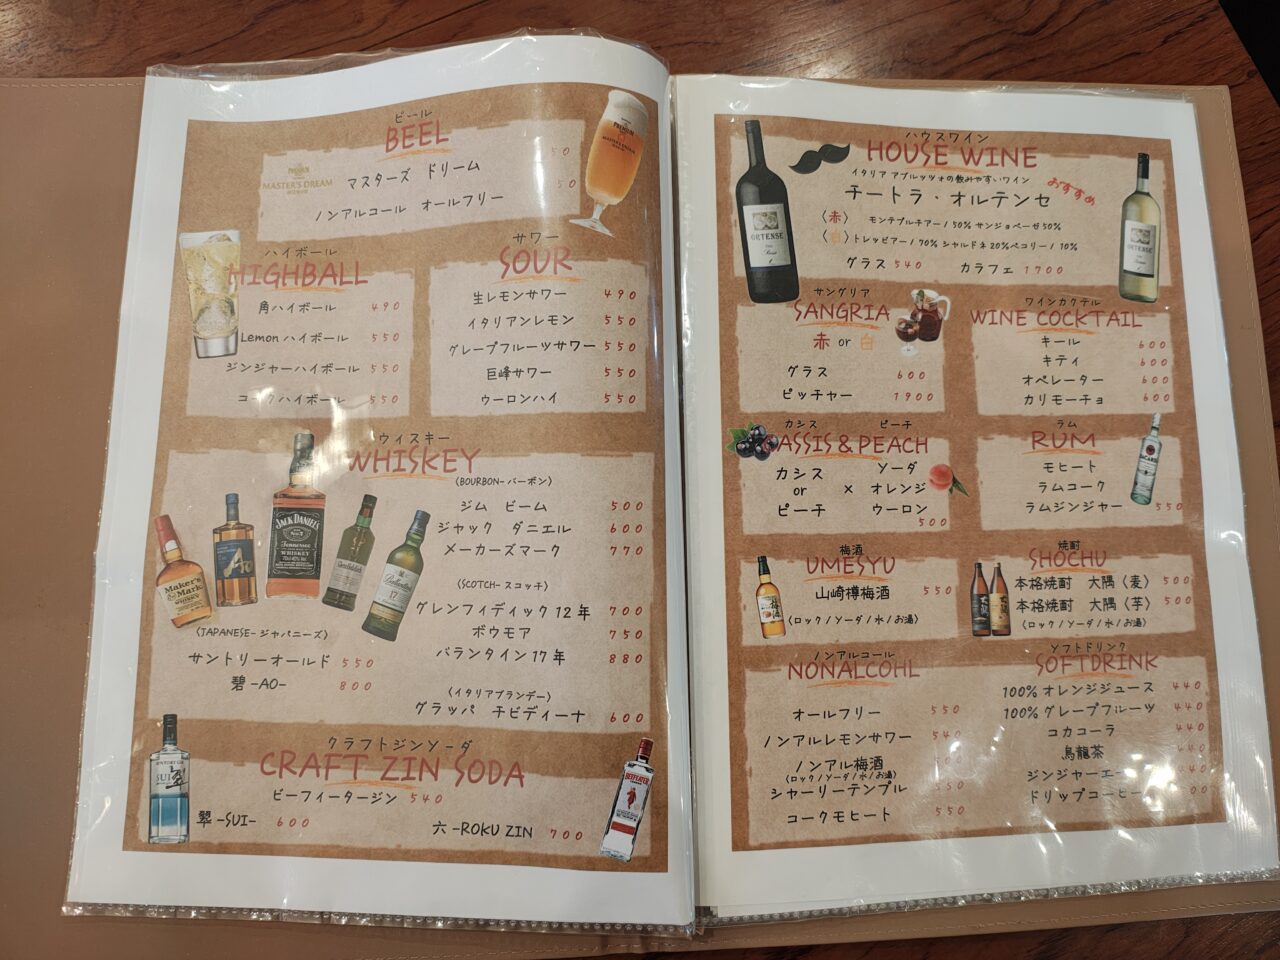 ビール
BEEL
MASTER'S DREAM
マスターズ ドリーム
ノンアルコール オールフリー
ハイボール
HIGHBALL
角ハイボール 490
Lemon ハイボール 550
ジンジャーハイボール 550
コークハイボール 550
サワー
SOUR
生レモンサワー 490
イタリアンレモン 550
グレープフルーツサワー 550
巨峰サワー 550
ウーロンハイ 550
ウィスキー
WHISKEY
(BOURBON-バーボン)
ジム ビーム 500
ジャック ダニエル 600
メーカーズマーク 770
(SCOTCH-スコッチ)
グレンフィディック12年 700
ボウモア 750
バランタイン17年 880
(JAPANESE-ジャパニーズ)
サントリーオールド 550
碧-AO- 800
(イタリアブランデー)
グラッパ チビディーナ 600
JACK DANIEL'S
Tennessee
WHISKEY
Maker's Mark
WHISKY
Ballantine's
17
クラフトジンソーダ
CRAFT ZIN SODA
ビーフィータージン 540
翠-SUI- 600
六-ROKU ZIN 700
SUI
翠
BEEFEATER
ハウスワイン
HOUSE WINE
イタリア アブルッツォの飲みやすいワイン
おすすめ
チートラ・オルテンセ
〈赤〉 モンテプルチアー/50% サンジョベーゼ50%
〈白〉トレッビアー/70% シャルドネ20%ペコリー/10%
グラス 540 カラフェ 1700
ORTENSE
サングリア
SANGRIA
赤 or 白
グラス 600
ピッチャー 1900
ワインカクテル
WINE COCKTAIL
キール 600
キティ 600
オペレーター 600
カリモーチョ 600
カシス ピーチ
ASSIS & PEACH
カシス or ピーチ × ソーダ オレンジ ウーロン
500
ラム
RUM
モヒート
ラムコーク
ラムジンジャー 550
BACARDI
梅酒
UMESYU
山崎樽梅酒 550
(ロック/ソーダ/水/お湯)
焼酎
SHOCHU
本格焼酎 大隅〈麦〉 500
本格焼酎 大隅〈芋〉 500
(ロック/ソーダ/水/お湯)
ノンアルコール
NONALCOHL
オールフリー 550
ノンアルレモンサワー 540
ノンアル梅酒
(ロック/ソーダ/水/お湯)
シャーリーテンプル 550
コークモヒート 550
ソフトドリンク
SOFTDRINK
100% オレンジジュース 440
100% グレープフルーツ 440
コカコーラ 440
烏龍茶 440
ジンジャーエー 440
ドリップコーヒー